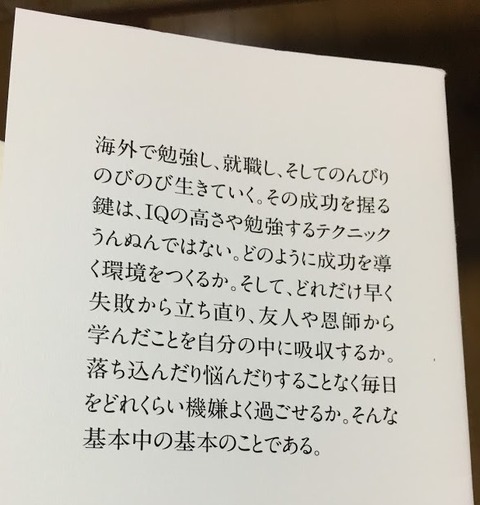 海外で勉強し、就職し、そしてのんびり
のびのび生きていく。その成功を握る
鍵は、IQの高さや勉強するテクニック
うんぬんではない。どのように成功を導
く環境をつくるか。そして、どれだけ早く
失敗から立ち直り、友人や恩師から
学んだことを自分の中に吸収するか。
落ち込んだり悩んだりすることなく毎日
をどれくらい機嫌よく過ごせるか。そんな
基本中の基本のことである。